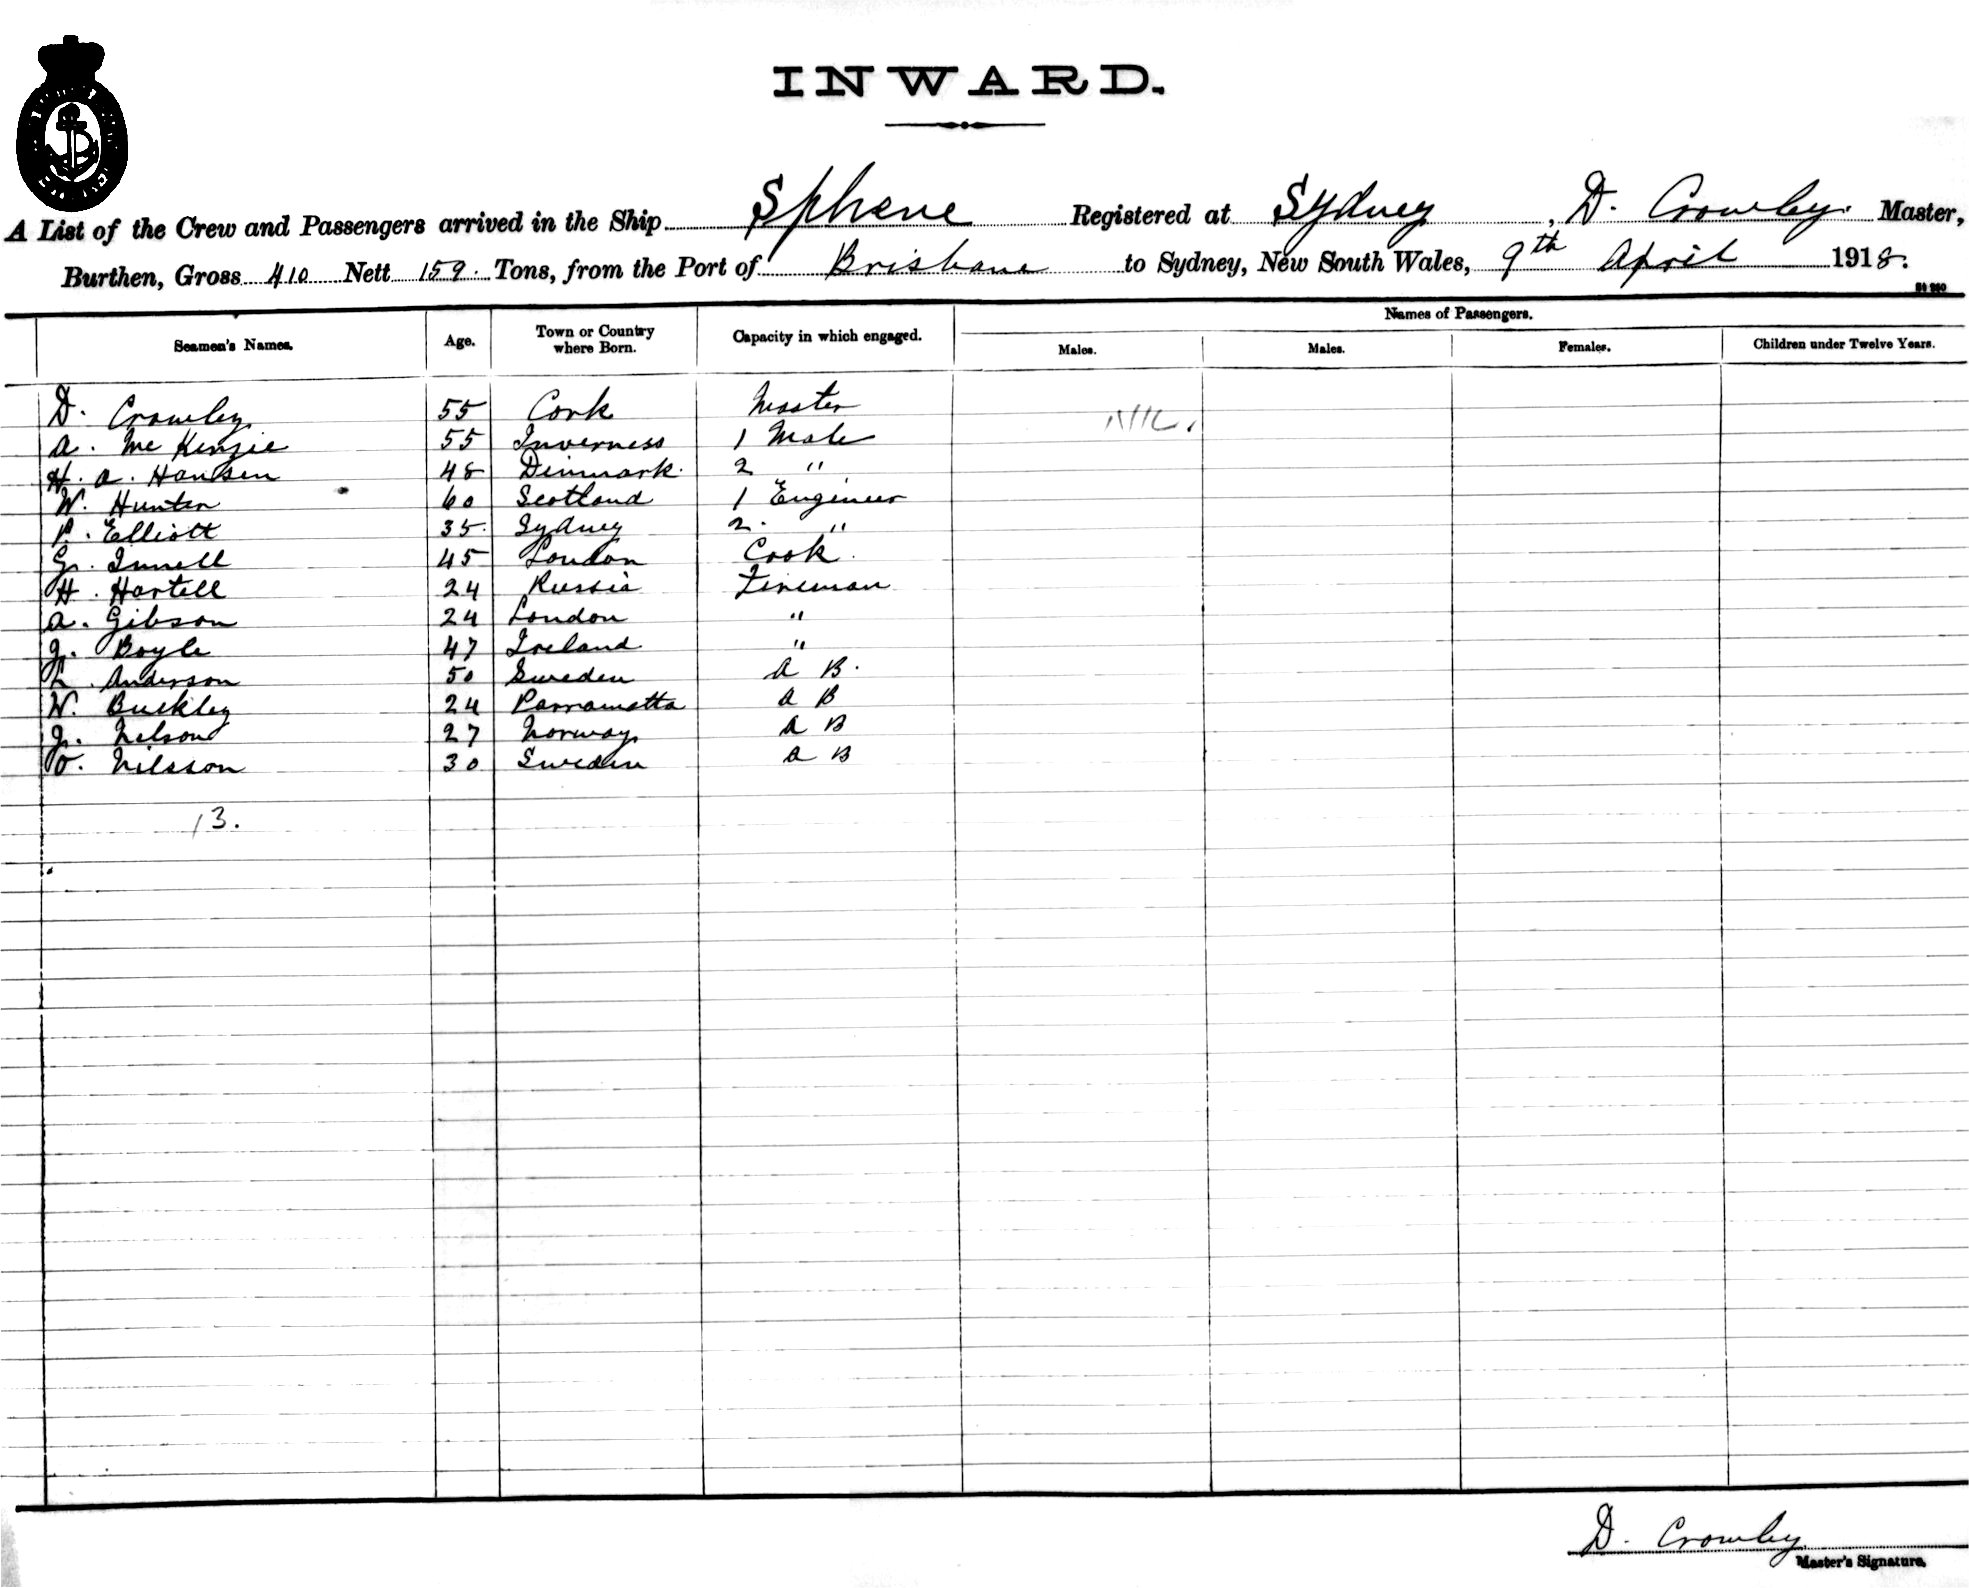 INWARD.
A List of the Crew and Passengers arrived in the Ship Sphene Registered at Sydney, D. Crowley. Master,
Burthen, Gross 410 Nett 159. Tons, from the Port of Brisbane to Sydney, New South Wales, 9th April 1918.
Names of Passengers.
Seamen's Names. Age. Town or Country where Born. Capacity in which engaged. Males. Males. Females. Children under Twelve Years.
D. Crowley 55 Cork Master NIL.
A. McKenzie 55 Inverness 1 Mate
H. A. Hansen 48 Dinmark. 2 "
W. Hunter 60 Scotland 1 Engineer
P. Elliott 35. Sydney 2. "
G. 45 London Cook.
H. Hartell 24 Russia Fireman
A. Gibson 24 London "
J. Boyle 47 Ireland "
L. Anderson 50 Sweden A B.
W. Buckley 24 Parramatta A B
J. Nelson 27 Norway A B
O. Nilsson 30 Sweden A B
13.
D. Crowley
Master's Signature.